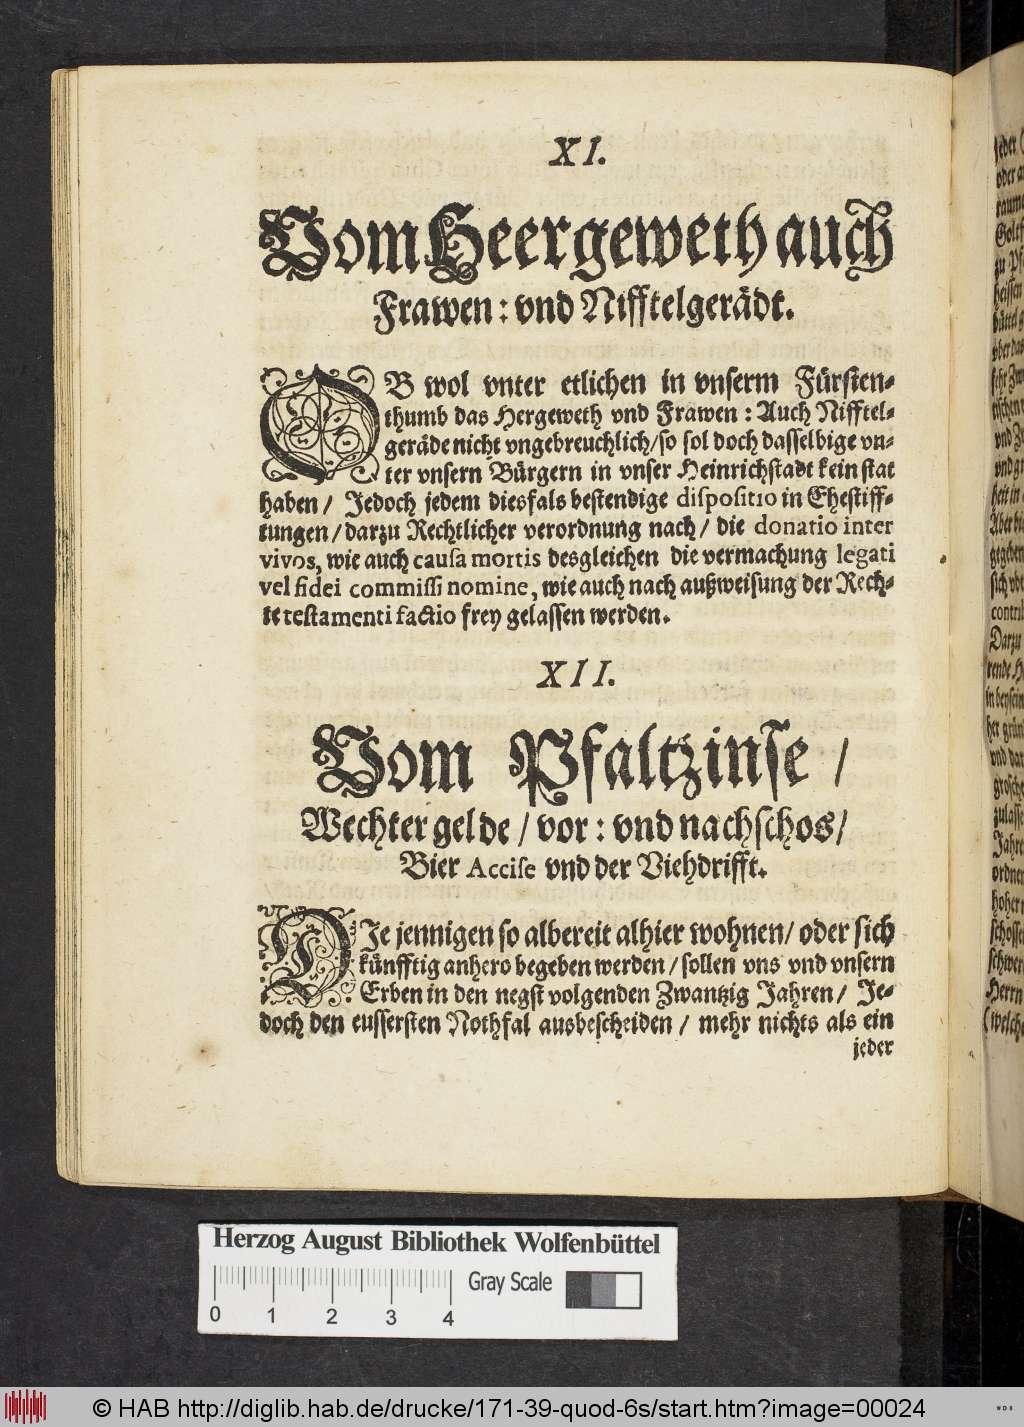 XI.
Vom Heergeweth auch
Frawen: vnd Nifftelgerädt.
OB wol vnter etlichen in vnserm Fürsten-
thumb das Hergeweth vnd Frawen: Auch Nifftel-
geräde nicht vngebreuchlich/so sol doch dasselbige vn-
ter vnsern Bürgern in vnser Heinrichstadt kein stat
haben/ Jedoch jedem diesfals bestendige dispositio in Ehestiff-
tungen/darzu Rechtlicher verordnung nach/ die donatio inter
vivos, wie auch causa mortis desgleichen die vermachung legati
vel fidei commissi nomine, wie auch nach außweisung der Rech-
te testamenti factio frey gelassen werden.
XII.
Vom Pfaltzinse/
Wechtergelde/vor: vnd nachschos/
Bier Accise vnd der Viehdrifft.
DIe jennigen so albereit alhier wohnen/ oder sich
künfftig anhero begeben werden/sollen vns vnd vnsern
Erben in den negst volgenden Zwantzig Jahren/ Je-
doch den eussersten Nothfal ausbescheiden/ mehr nichts als ein
jeder
Herzog August Bibliothek Wolfenbüttel
Gray Scale
0 1 2 3 4
© HAB http://diglib.hab.de/drucke/171-39-quod-6s/start.htm?image=00024